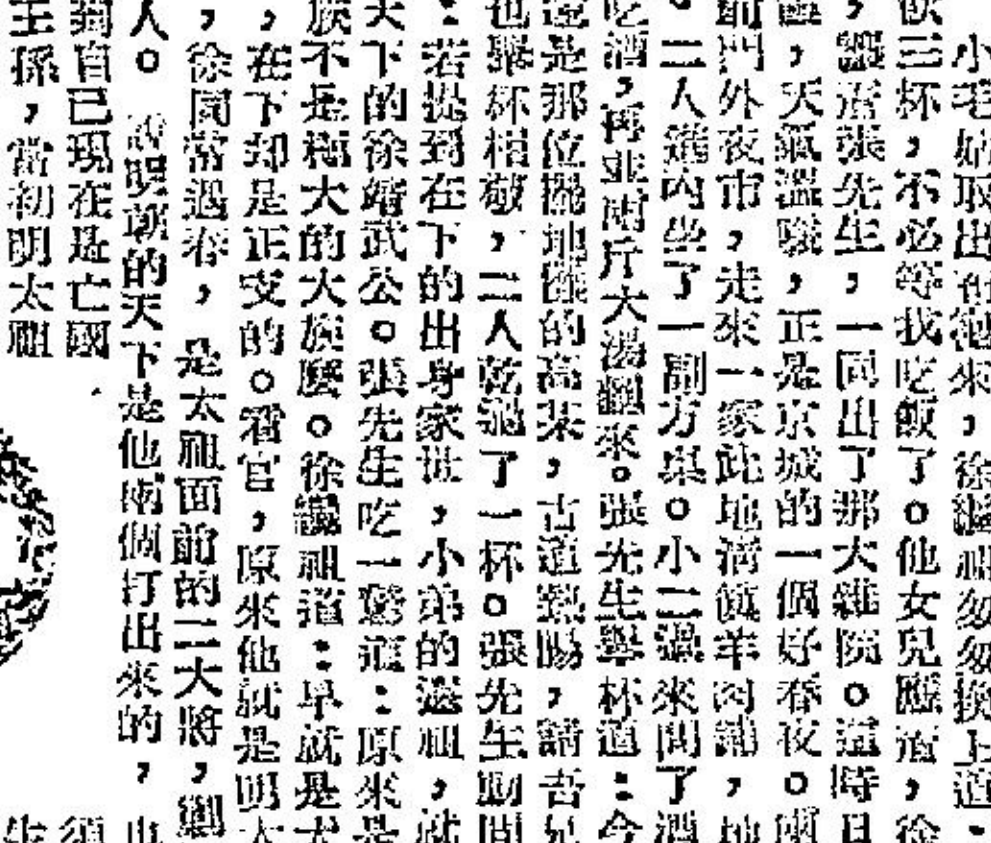 小毛姑取出荷包來，徐繼祖匆匆換上道：
飲三杯，不必等我吃飯了。他女兒應道，徐
，張先生，一同出了那大雜院。這時日
，天氣溫暖，正是京城的一個好春夜。兩
前門外夜市，走來一家此地清眞羊肉鋪，地
。二人進內坐了一副方桌。小二過來問了酒
吃酒，再並兩斤大湯麵來。張先生舉杯道：今
是那位擺地攤的高某，古道熱腸，請吾兄
也舉杯相敬，二人乾過了一杯。張先生動問
：若提到在下的出身家世，小弟的遠祖，就
天下的徐靖武公。張先生吃一驚道：原來是
族不是極大的大族麼。徐繼祖道：早就是大
，在下却是正支的。看官，原來他就是明太
，徐同常遇春，是太祖面前的二大將，
人。說明朝的天下是他兩個打出來的，也
獨自己現在是亡國
王孫，當初明太祖